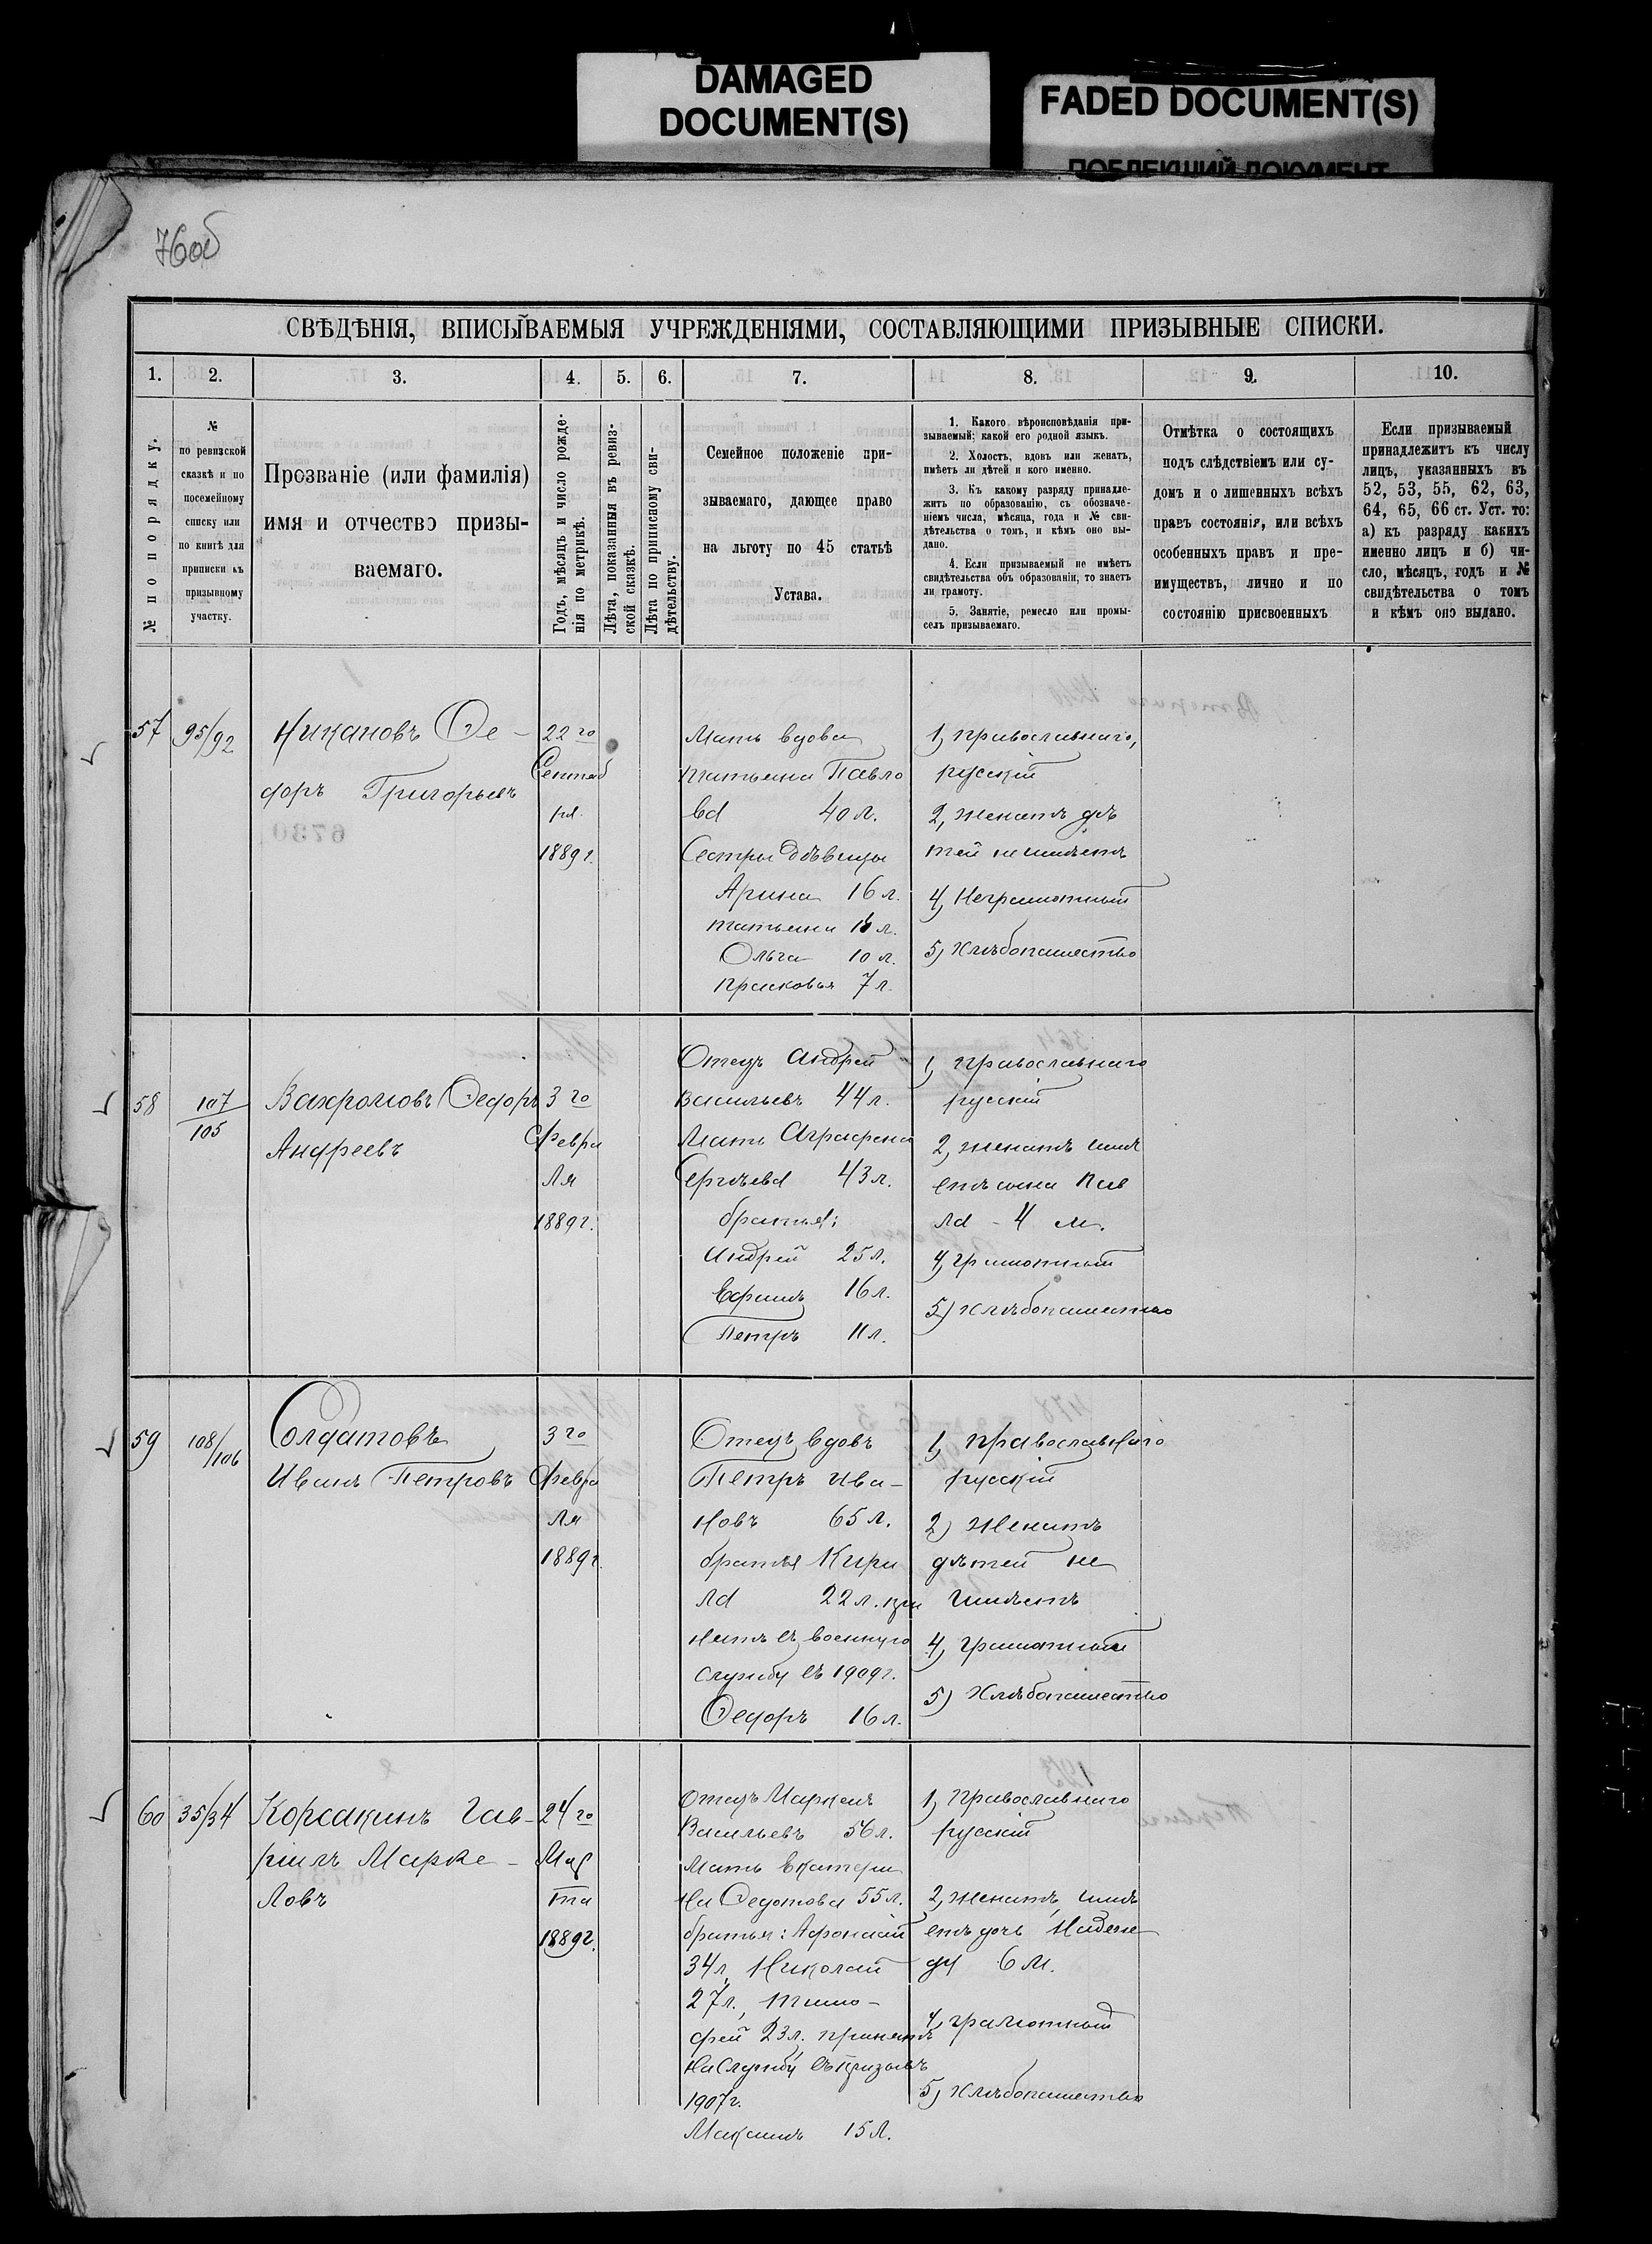 DAMAGED
DOCUMENT(S)
FADED DOCUMENT(S)
ПОБЛЕКШИЙ ДОКУМЕНТ
76об
СВѢДѢНІЯ, ВПИСЫВАЕМЫЯ УЧРЕЖДЕНІЯМИ, СОСТАВЛЯЮЩИМИ ПРИЗЫВНЫЕ СПИСКИ.
1. 2. 3. 4. 5. 6. 7. 8. 9. 10.
№ по порядку.
№
по ревизской
сказкѣ и по
посемейному
списку или
по книгѣ для
приписки къ
призывному
участку.
Прозваніе (или фамилія)
имя и отчество призы-
ваемаго.
Годъ, мѣсяцъ и число рожде-
нія по метрикѣ.
Лѣта, показанныя въ ревиз-
ской сказкѣ.
Лѣта по приписному сви-
дѣтельству.
Семейное положеніе при-
зываемаго, дающее право
на льготу по 45 статьѣ
Устава.
1. Какого вѣроисповѣданія при-
зываемый; какой его родной языкъ.
2. Холостъ, вдовъ или женатъ,
имѣетъ ли дѣтей и кого именно.
3. Къ какому разряду принадле-
житъ по образованію, съ обозначе-
ніемъ числа, мѣсяца, года и № сви-
дѣтельства о томъ, и кѣмъ оно вы-
дано.
4. Если призываемый не имѣетъ
свидѣтельства объ образованіи, то знаетъ
ли грамоту.
5. Занятіе, ремесло или промы-
селъ призываемаго.
Отмѣтка о состоящихъ
подъ слѣдствіемъ или су-
домъ и о лишенныхъ всѣхъ
правъ состоянія, или всѣхъ
особенныхъ правъ и пре-
имуществъ, лично и по
состоянію присвоенныхъ
Если призываемый
принадлежитъ къ числу
лицъ, указанныхъ въ
52, 53, 55, 62, 63,
64, 65, 66 ст. Уст. то:
а) къ разряду какихъ
именно лицъ и б) чи-
сло, мѣсяцъ, годъ и №
свидѣтельства о томъ
и кѣмъ оно выдано.
57
95/92
Никановъ Ѳе-
доръ Григорьевъ
22го
Сентяб
ря
1889 г.
Мать вдова
Татьяна Павло
ва 40 л.
Сестры дѣвицы
Арина 16 л.
Татьяна л.
Ольга 10 л.
Прасковья 7 л.
1, православнаго,
русскій
2, женатъ дѣ
тей не имѣетъ
4, Неграмотный
5) Хлѣбопашество
58
107/105
Вахромовъ Ѳедоръ
Андреевъ
3го
Февра
ля
1889 г.
Отецъ Андрей
Васильевъ 44 л.
Мать Аграфена
Сергѣева 43 л.
братья:
Андрей 25 л.
Ефимъ 16 л.
Петръ 11 л.
1, Православнаго
русскій
2, женатъ имѣ
етъ сына Пав
ла - 4 м.
4, грамотный
5) Хлѣбопашество
59
108/106
Солдатовъ
Иванъ Петровъ
3го
Февра
ля
1889 г.
Отецъ вдовъ
Петръ Ива-
новъ 65 л.
братья Кири
ла 22 л. при
нятъ въ военную
службу въ 1909 г.
Ѳедоръ 16 л.
1, Православнаго
русскій
2) Женатъ
дѣтей не
имѣетъ
4, грамотный
5) Хлѣбопашество
60
35/34
Корсакинъ Гав-
ріилъ Марке-
ловъ
24го
Мар
та
1889 г.
Отецъ Маркелъ
Васильевъ 56 л.
Мать Екатери
на Ѳедотова 55 л.
братья: Афонасій
34 л, Николай
27 л., Тимо-
фей 23 л. принятъ
на службу въ призывъ
1907 г.
Максимъ 15 л.
1, Православнаго
русскій
2, женатъ, имѣ
етъ дочь Надеж
ду 6 м.
4, грамотный
5) Хлѣбопашество